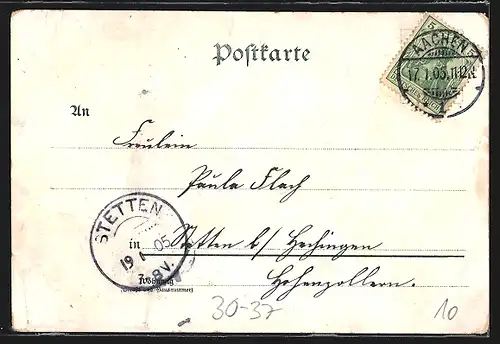 5
AACHEN
17.1.05.11-12.V.
1
Postkarte
An
Fräulein
Paula Flach
STETTEN
19 1 05
7-8V.
in Stetten b/ Hechingen
Hohenzollern.
Wohnung
(Straße und Hausnummer)
30-37
10